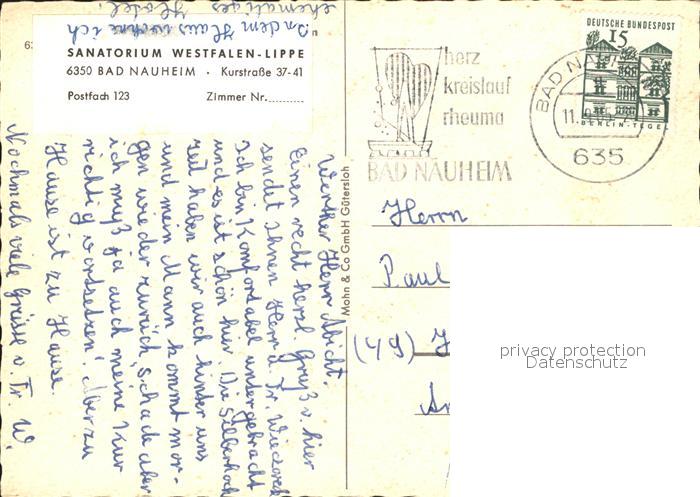 In dem Haus wohne ich
ehemaliges Hotel.
SANATORIUM WESTFALEN-LIPPE
6350 BAD NAUHEIM · Kurstraße 37-41
Postfach 123 Zimmer Nr.
herz
kreislauf
rheuma
BAD NAUHEIM
BAD NAU
11.9.65
635
DEUTSCHE BUNDESPOST
15
BERLIN-TEGEL
Werther Herr Abicht.
Einen recht herzl. Gruß v. hier
sendet Ihnen Herr u. Fr. Wieczorek
Ich bin Komfortabel untergebracht
und es ist schön hier. Die Silberhoch
zeit haben wir auch hinter uns
und mein Mann kommt mor-
gen wieder zurück, schade aber
ich muß ja auch meine Kur
richtig vortsetzen. Aber zu
Hause ist zu Hause.
Nochmals viele Grüsse v. Fr. W.
Mohn & Co GmbH Gütersloh
Herrn
Paul
(49)
privacy protection
Datenschutz